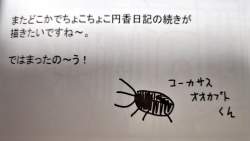 またどこかでちょこちょこ円香日記の続きが
描きたいですね～。
ではまったの～う！
コーカサス
オオカブト
くん